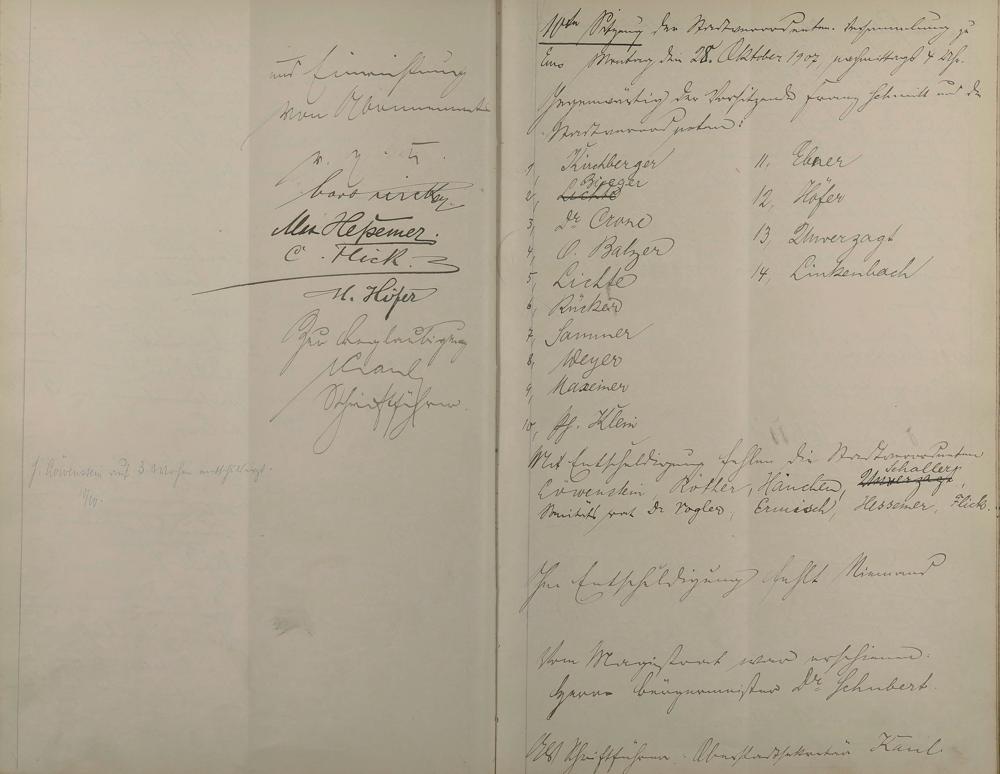 und Einrichtung
von Abonnements
v. g. u.
Max Heßemer.
C. Flick.
H. Höfer
Zur Beglaubigung
Kaul
Schriftführer.
H. Löwenstein auf 3 Wochen entschuldigt.
10te Sitzung der Stadtverordneten-Versammlung zu
Ems Montag den 28. Oktober 1907, nachmittags 4 Uhr.
Gegenwärtig der Vorsitzende Franz Schmitt und die
Stadtverordneten:
1, Kirchberger
Bieger
2, Lichte
3, Dr Crone
4, O. Balzer
5, Lichte
6, Rücker
7, Sommer
8, Weyer
9, Maxeiner
10, Ph. Klein
11, Ebner
12, Höfer
13, Unverzagt
14, Linkenbach
Mit Entschuldigung fehlen die Stadtverordneten
Schaller,
Löwenstein, Röther, Hänchen, Unverzagt,
Sanitätsrat Dr Vogler, Ermisch, Hessemer, Flick.
Ohne Entschuldigung fehlt Niemand
Vom Magistrat war erschienen:
Herr Bürgermeister Dr Schubert.
Als Schriftführer: Oberstadtsekretär Kaul.